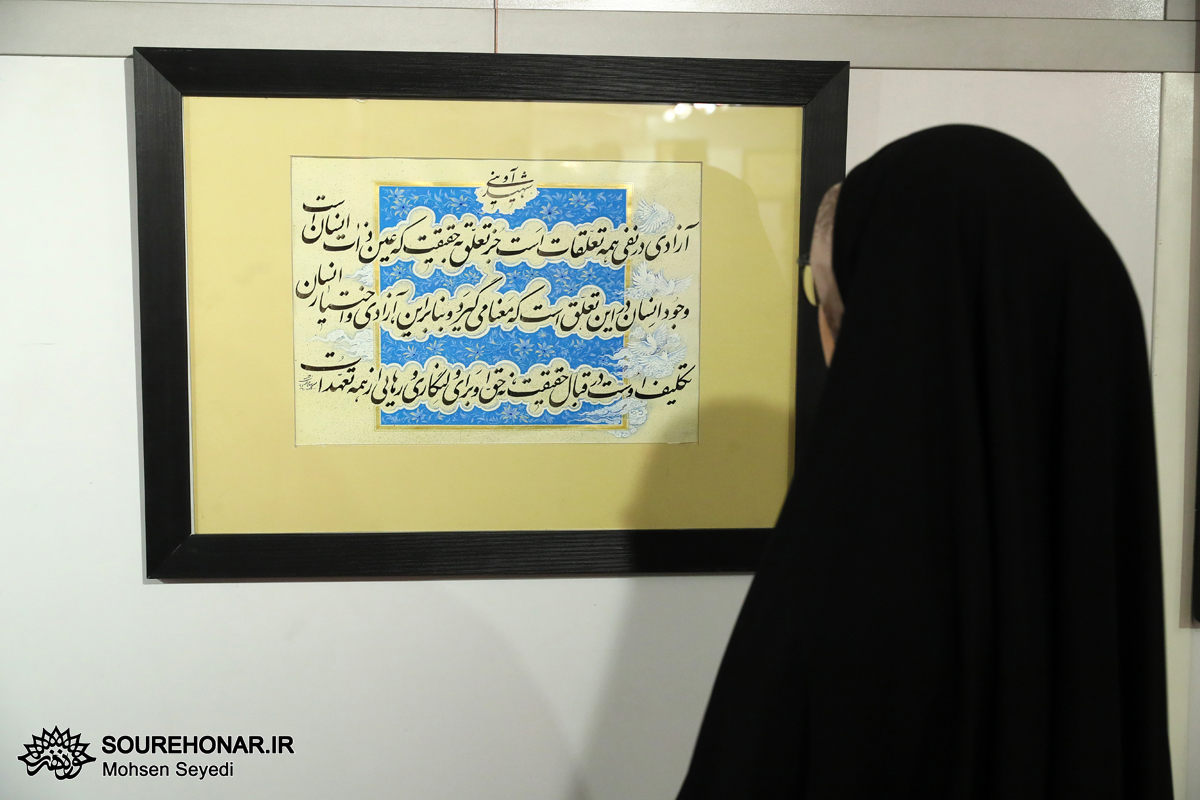 شهید آوینی
آزادی در نفی همه تعلقات است جز تعلق به حقیقت که عین ذات انسان است
وجود انسان در این تعلق است که معنا می گیرد و بنابراین آزادی و اختیار انسان
تکلیف اوست در قبال حقیقت نه حق او برای ولنگاری و رهایی از همه تعهدات
SOUREHONAR.IR
Mohsen Seyedi